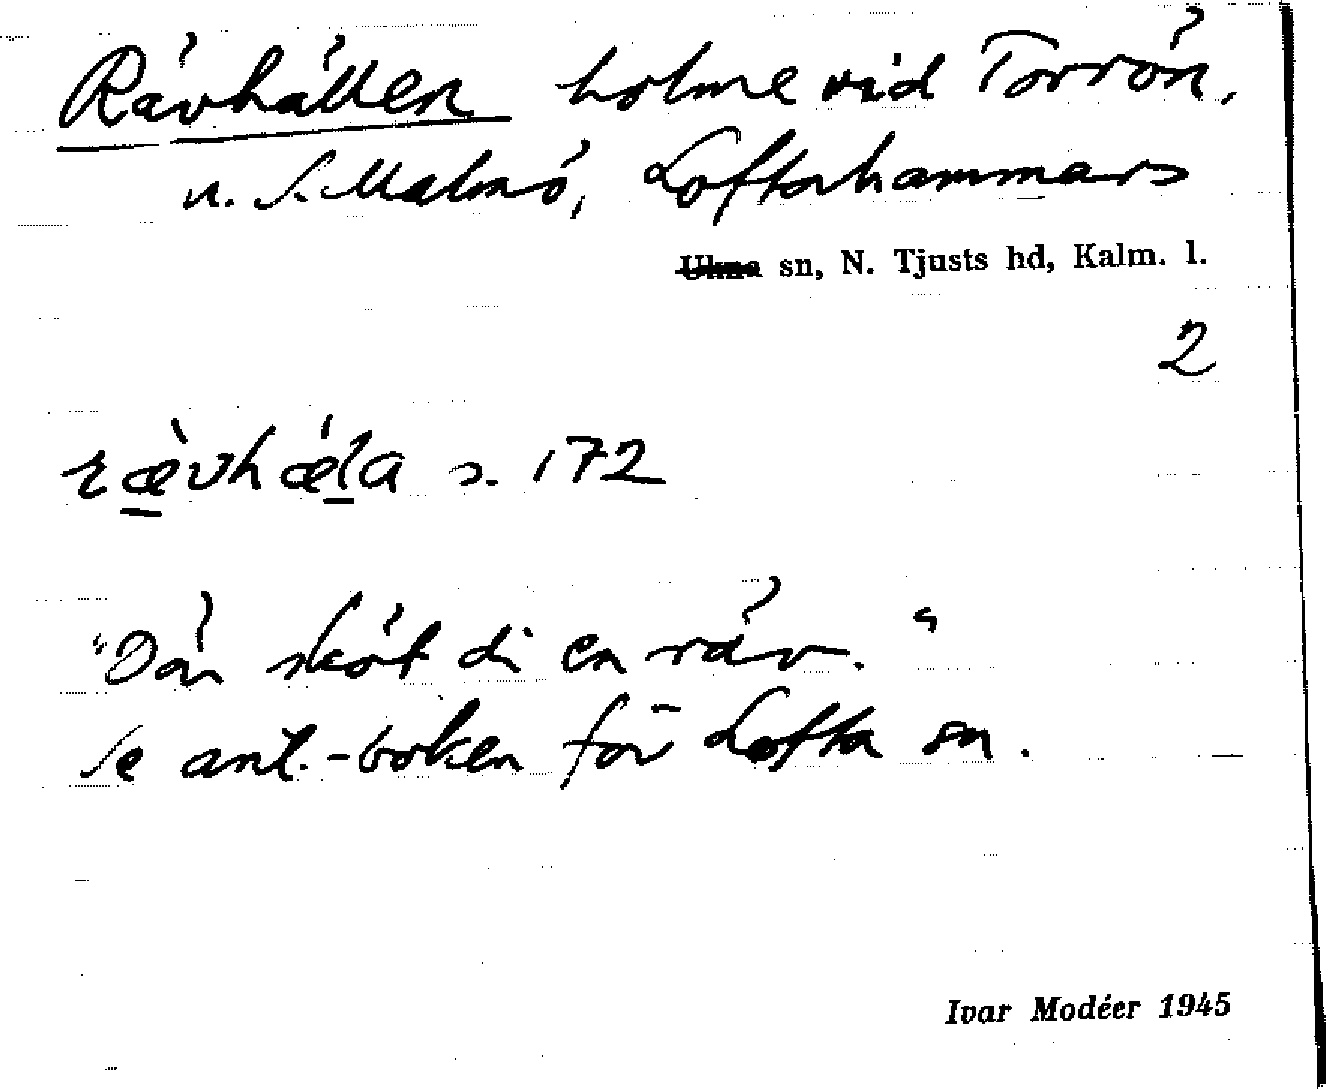 Rävhällen holme vid Torrön,
n. S. Malmö, Loftahammars
Ukna sn, N. Tjusts hd, Kalm. l.
2
rævhæla s. 172
"Dän sköt di en räv."
Se ant.-boken för Lofta sn.
Ivar Modéer 1945